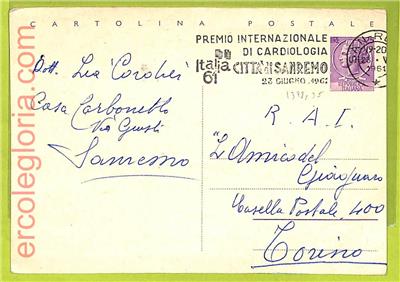 CARTOLINA POSTALE
PREMIO INTERNAZIONALE
DI CARDIOLOGIA
Italia
61
CITTÀ DI SANREMO
23 GIUGNO 1961
Dott. Lia
Casa Carbonetto
Via Giusti
Sanremo
R. A. I.
"L'Amico del
Giaguaro
Casella Postale 400
Torino
ercolegloria.com